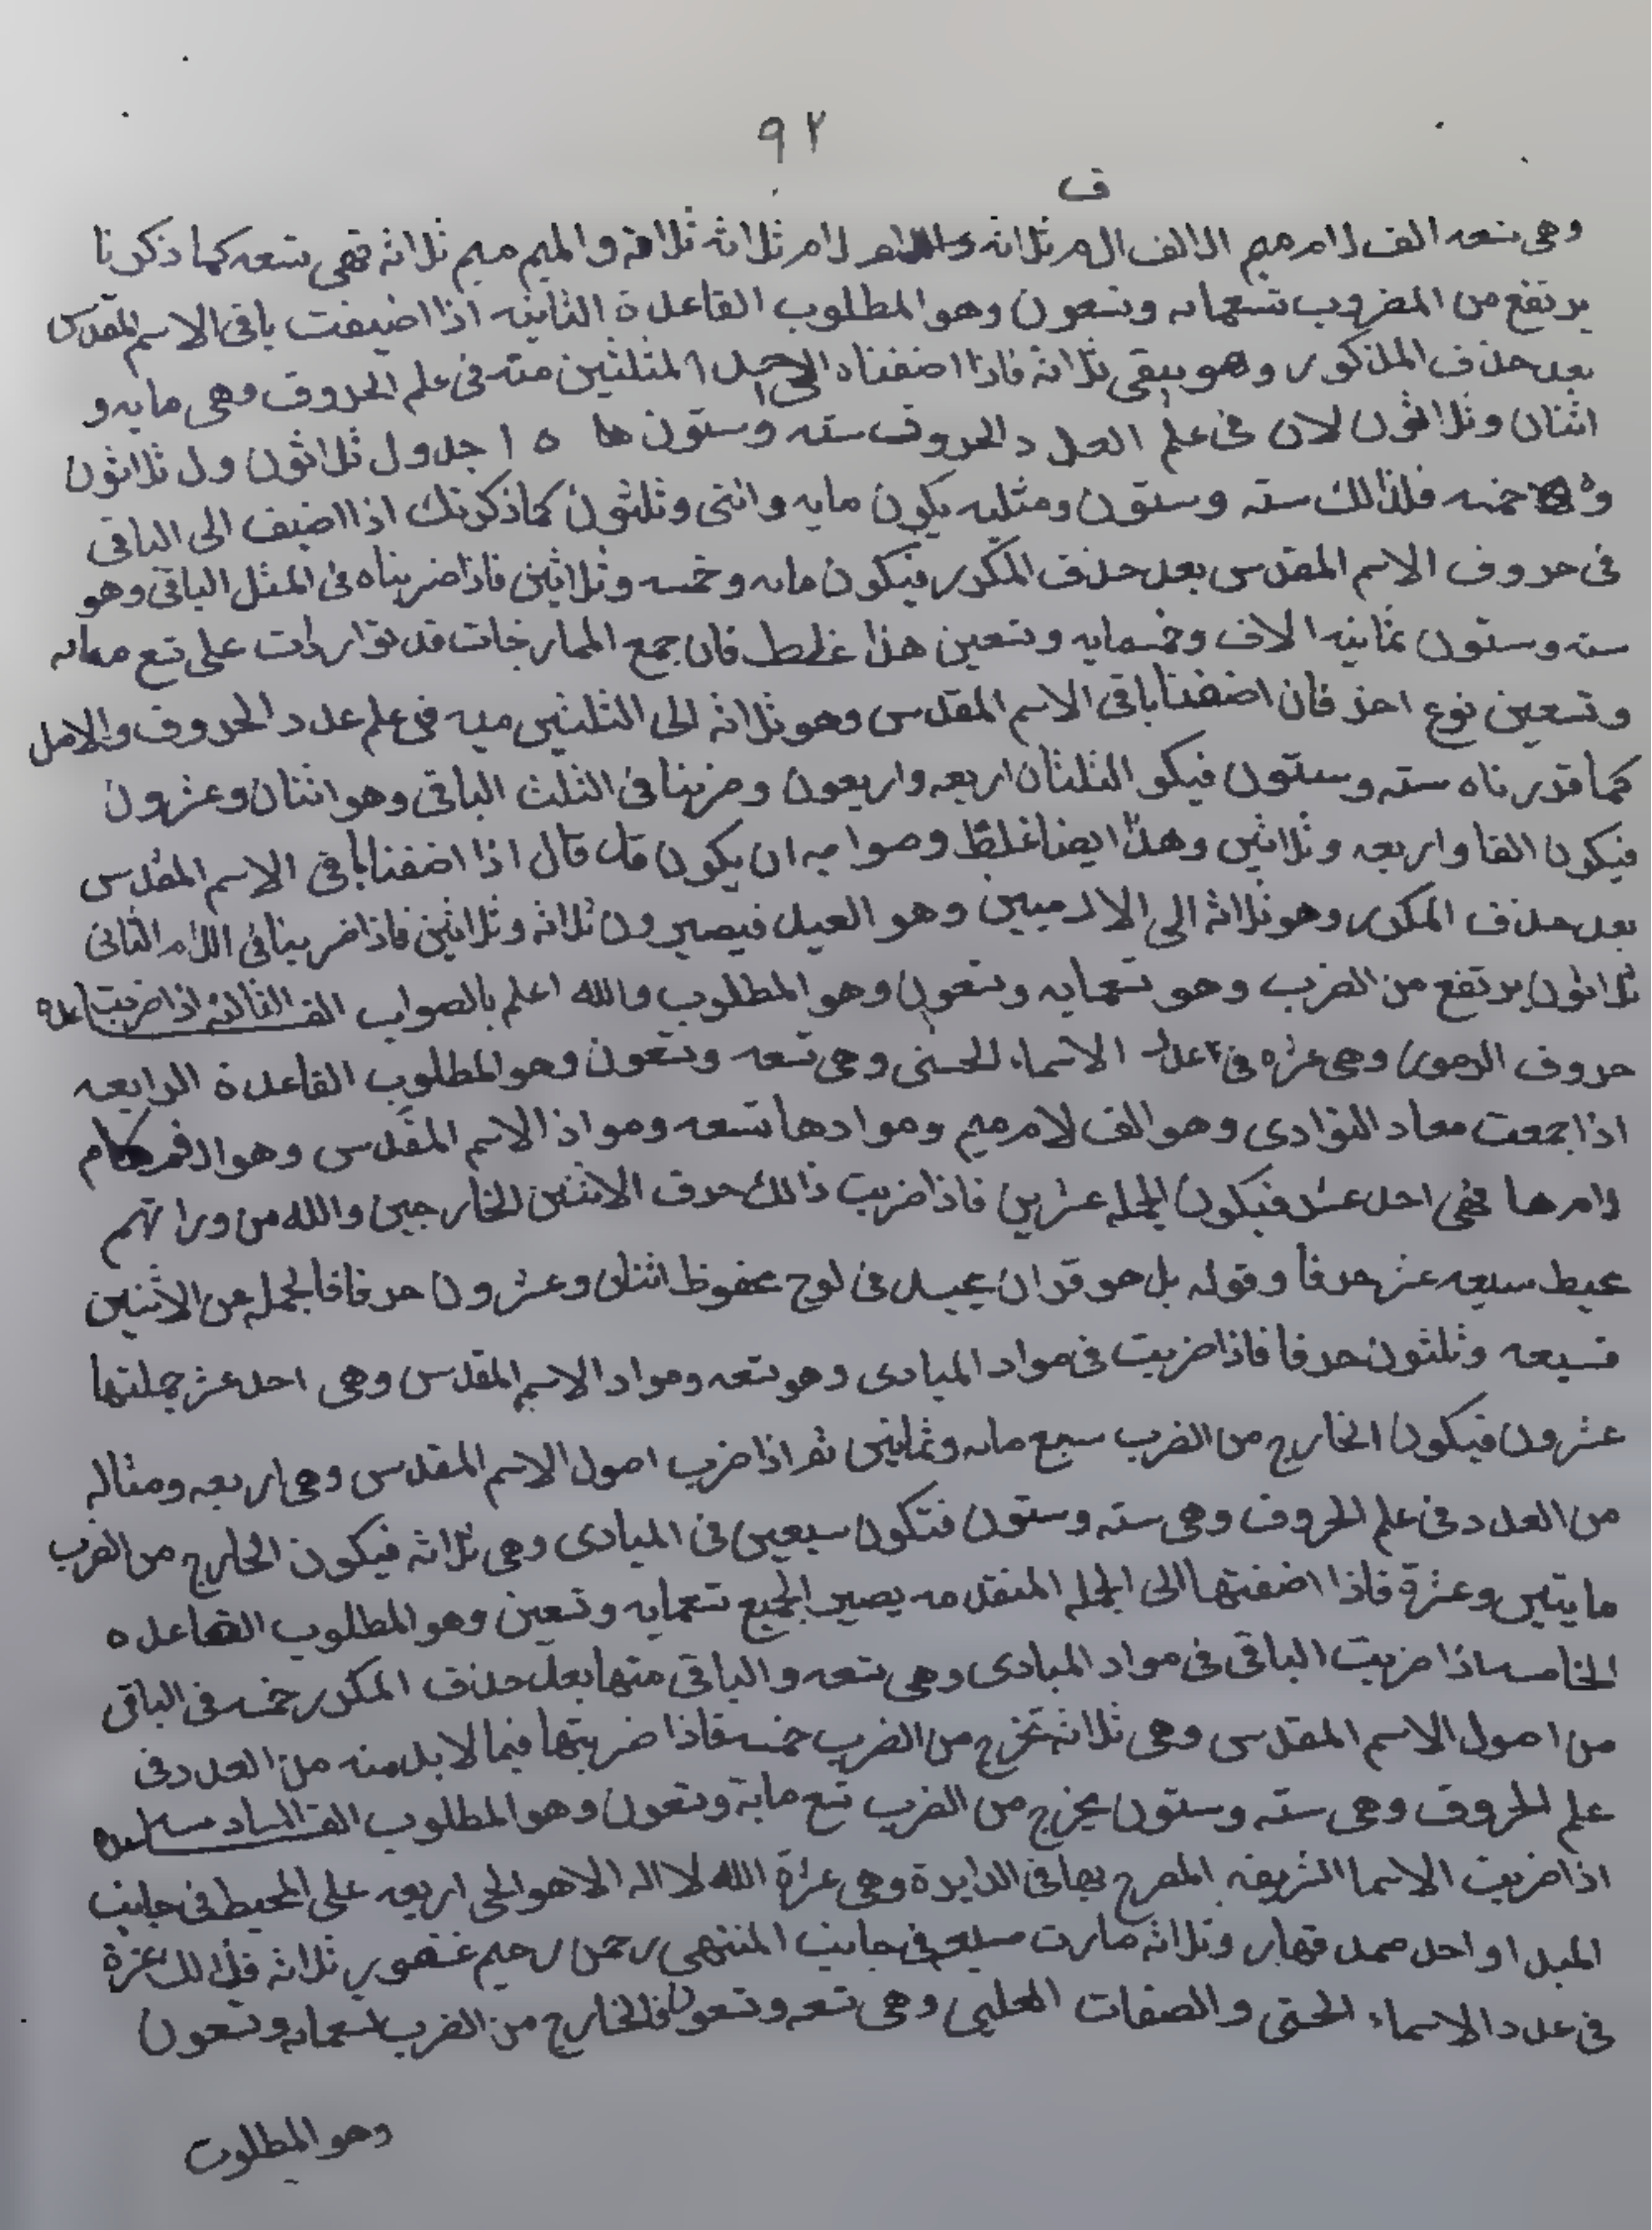 ٩٢
ف
وهى تسعه الف لام ميم الالف ال م ثلاثه لام ثلاثه ثلاثه والميم ميم ثلاثه فهى تسعه كما ذكرنا
يرتفع من المضروب تسعمايه وتسعون وهو المطلوب القاعدة الثانيه اذا اضيفت باقى الاسم المقدس
بعد حذف المذكور وهو يبقى ثلاثة فاذا اضفناه الى المثلثين منه فى علم الحروف وهى مايه و
اثنان وثلاثون لان فى علم العدد الحروف سته وستون ها ه ا جدول ثلاثون ول ثلاثون
وه خمسه فلذلك سته وستون ومثليه يكون مايه واثنى وثلثون كما ذكرتك اذا اضيف الى الباقى
فى حروف الاسم المقدس بعد حذف المكرر فيكون مايه وخمسه وثلاثين فاذا ضربناه فى المثل الباقى وهو
سته وستون ثمانيه الاف وخمسمايه وتسعين هذا غلط فان جمع الممارخات قد تواردت على تسع مايه
وتسعين نوع اخر فان اضفنا باقى الاسم المقدس وهو ثلاثه الى الثلثين ميه فى علم عدد الحروف والامل
كما قدرناه سته وستون فيكو الثلثان اربعه واربعون وضربنا فى الثلث الباقى وهو اثنان وعشرون
فيكون الفا واربعه وثلاثين وهذا ايضا غلط وصوابه ان يكون قد قال اذا اضفنا باقى الاسم المقدس
بعد حذف المكرر وهو ثلاثه الى الادميين وهو العبد فيصيرون ثلاثه وثلاثين فاذا ضربنا فى اللام الثانى
ثلاثون يرتفع من الضرب وهو تسعمايه وتسعون وهو المطلوب والله اعلم بالصواب القاعده الثالثه اذا ضربت
حروف الرحمن وهى عشره فى عدد الاسماء الحسنى وهى تسعه وتسعون وهو المطلوب القاعدة الرابعه
اذا جمعت معاد التوادى وهو الف لام ميم وموادها تسعه ومواد الاسم المقدس وهو الف لام
لام ها فهى احد عشر فيكون الجمله عشرين فاذا ضربت ذالك حرف الاثنين الخارجين والله من ورائهم
محيط سبعه عشر حرفا وقوله بل هو قران مجيد فى لوح محفوظ اثنان وعشرون حرفا فالجمله من الاثنين
تسبعه وثلثون حرفا فاذا ضربت فى مواد المبادى وهو تسعه ومواد الاسم المقدس وهى احد عشر جملتها
عشرون فيكون الخارج من الضرب سبع مايه وثمانين ثم اذا ضرب اصول الاسم المقدس وهى اربعه ومثاله
من العدد فى علم الحروف وهى سته وستون فتكون سبعين فى المبادى وهى ثلاثه فيكون الخارج من الضرب
مايتين وعشرة فاذا اضفتها الى الجمله المتقدمه يصير الجميع تسعمايه وتسعين وهو المطلوب القاعده
الخامسه اذا ضربت الباقى فى مواد المبادى وهى تسعه والباقى منها بعد حذف المكرر خمسه فى الباقى
من اصول الاسم المقدس وهى ثلاثه تخرج من الضرب خمسه فاذا ضربتها فيما لا بد منه من العدد فى
علم الحروف وهى سته وستون يخرج من الضرب تسع ماية وتسعون وهو المطلوب القاعده السادسه
اذا ضربت الاسما الشريفه المصرح بها فى الدايرة وهى عشرة الله لا اله الا هو الحى اربعه على المحيط فى جانب
المبدا واحد صمد قهار وثلاثه صارت سبعه فى جانب المنتهى رحمن رحيم غفور ثلاثه فذالك عشرة
فى عدد الاسماء الحسنى والصفات العليى وهى تسعه وتسعون فالخارج من الضرب تسعمايه وتسعون
وهو المطلوب